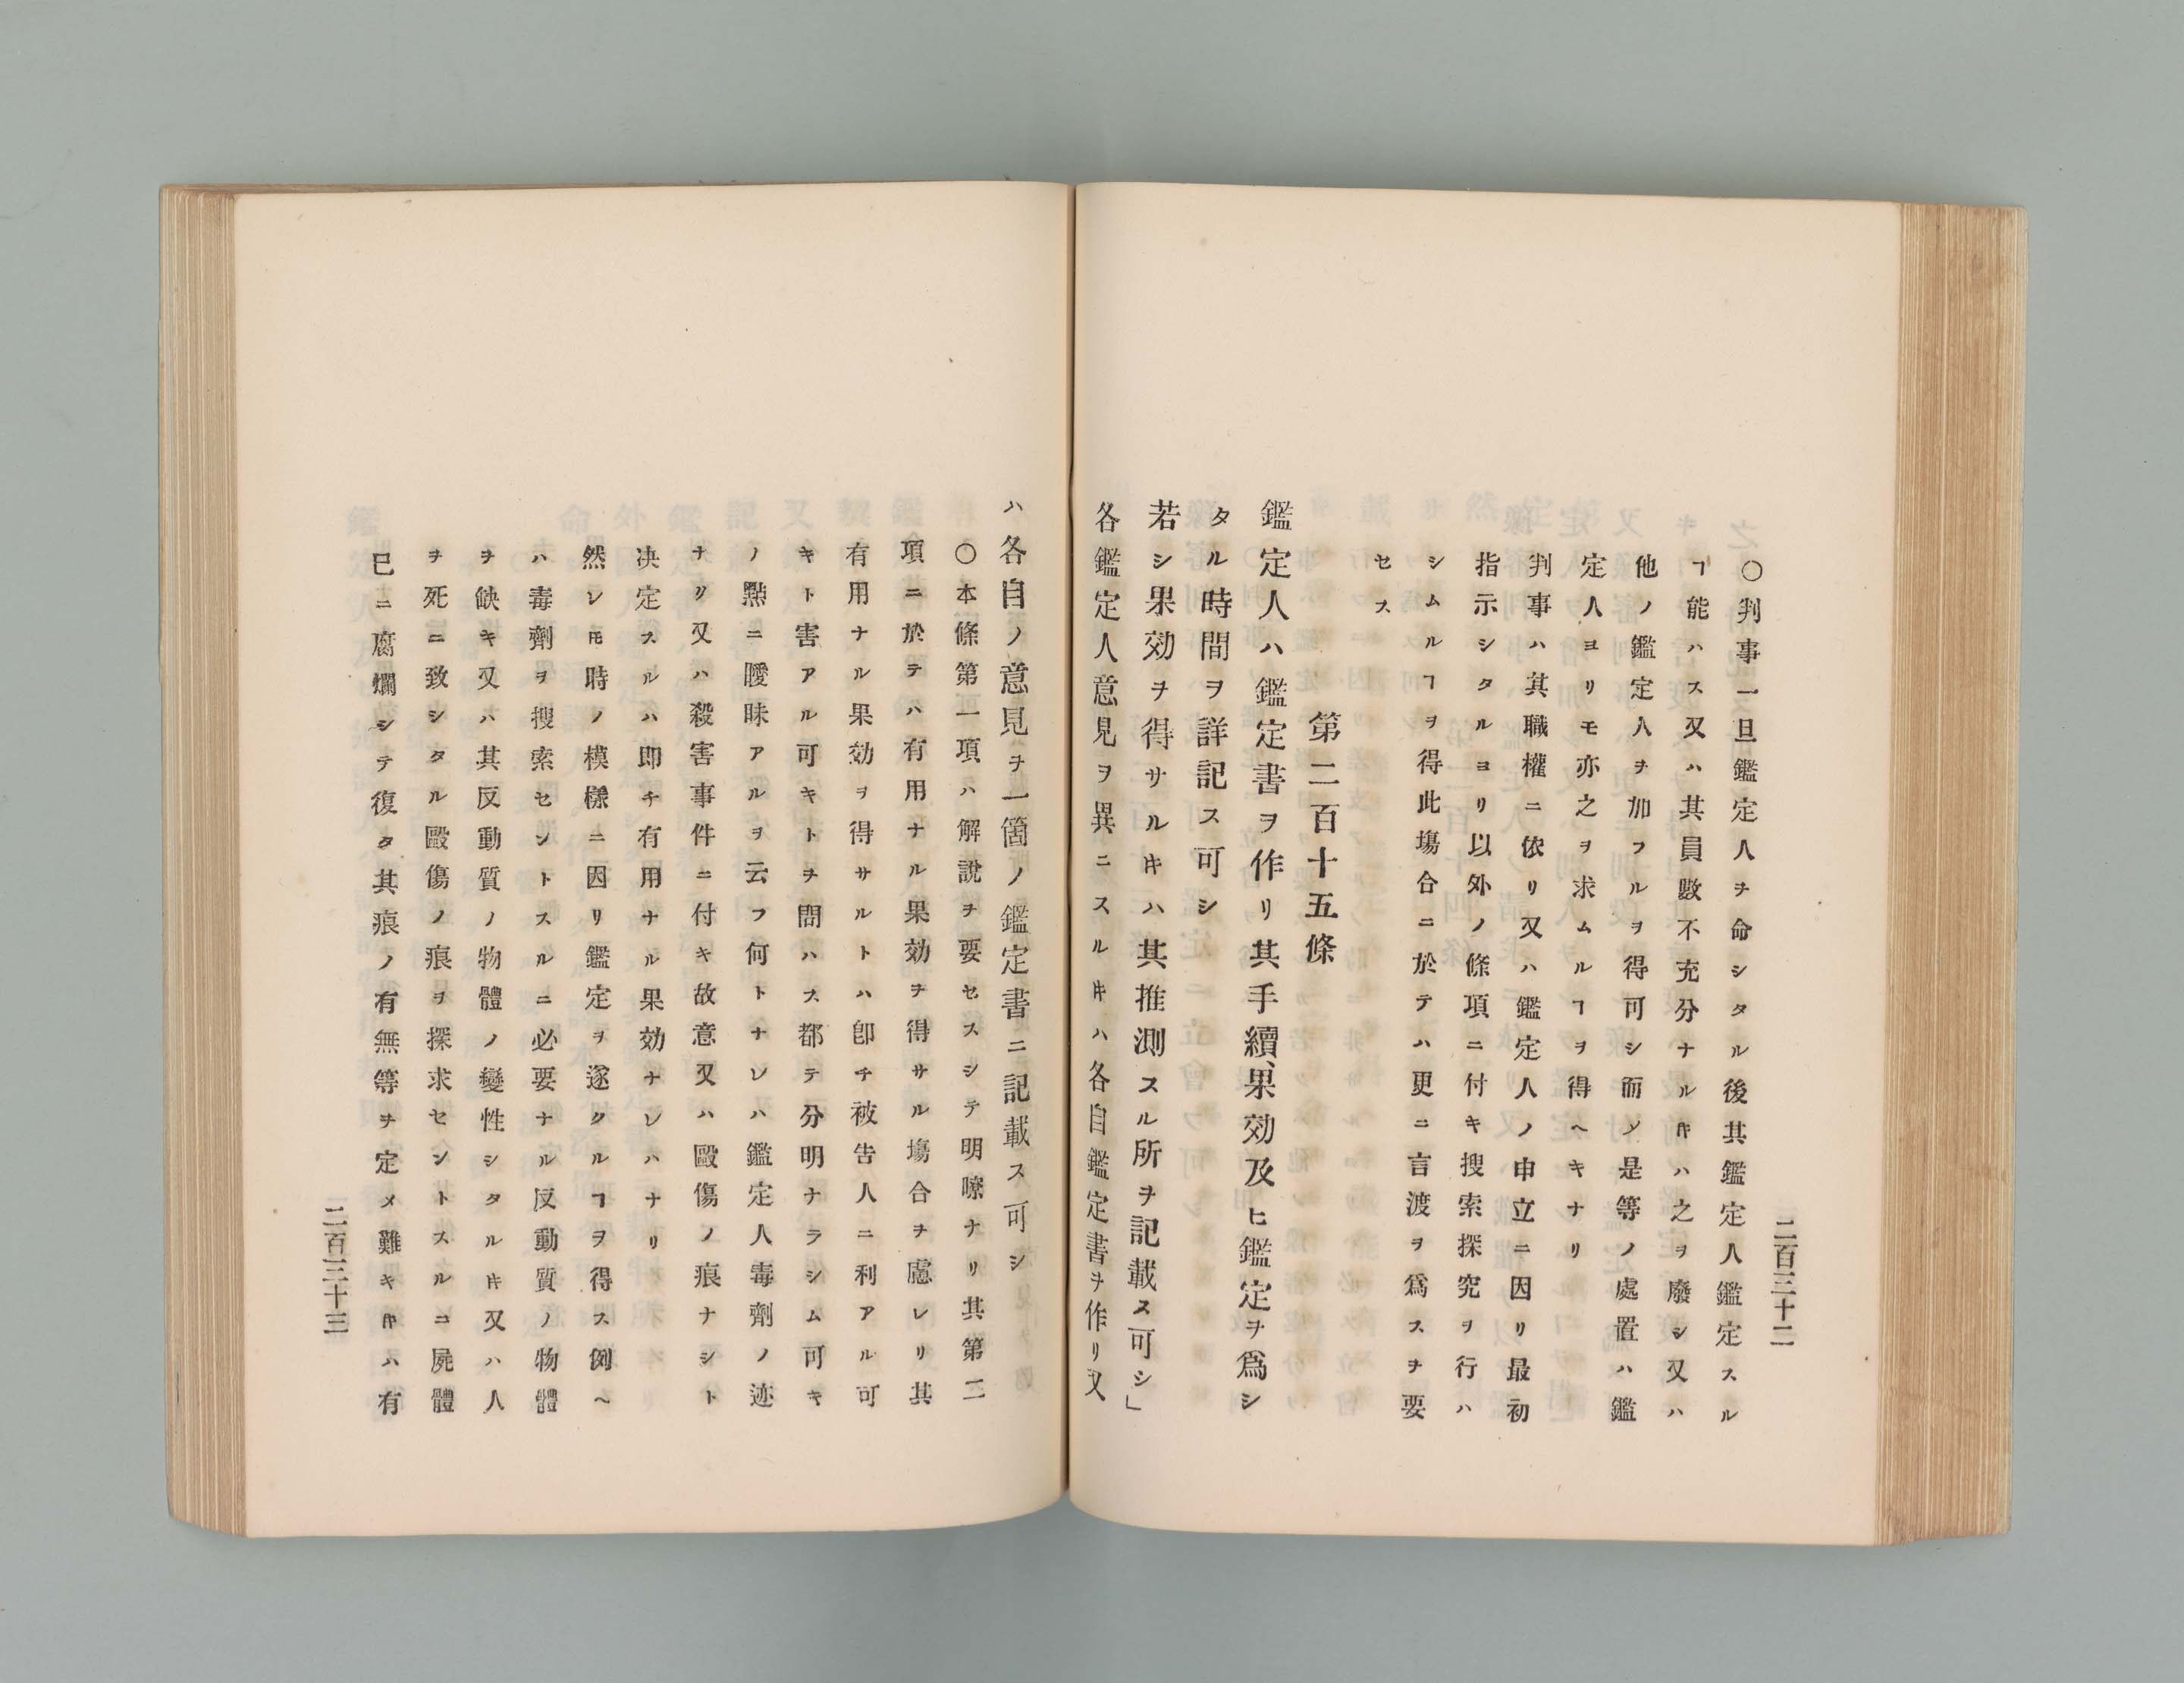 二百三十二
○判事一旦鑑定人ヲ命シタル後其鑑定人鑑定スル
ヿ能ハス又ハ其員數不充分ナルキハ之ヲ廢シ又ハ
他ノ鑑定人ヲ加フルヲ得可シ而ソ是等ノ處置ハ鑑
定人ヨリモ亦之ヲ求ムルヿヲ得ヘキナリ
判事ハ其職權ニ依リ又ハ鑑定人ノ申立ニ因リ最初
指示シタルヨリ以外ノ條項ニ付キ搜索探究ヲ行ハ
シムルヿヲ得此塲合ニ於テハ更ニ言渡ヲ爲スヲ要
セス
第二百十五條
鑑定人ハ鑑定書ヲ作リ其手續、果効及ヒ鑑定ヲ爲シ
タル時間ヲ詳記ス可シ
若シ果効ヲ得サルキハ其推測スル所ヲ記載ス可シ」
各鑑定人意見ヲ異ニスルキハ各自鑑定書ヲ作リ又
ハ各自ノ意見ヲ一箇ノ鑑定書ニ記載ス可シ
○本條第一項ハ解說ヲ要セスシテ明暸ナリ其第二
項ニ於テハ有用ナル果効ヲ得サル塲合ヲ慮レリ其
有用ナル果効ヲ得サルトハ卽チ被告人ニ利アル可
キト害アル可キトヲ問ハス都テ分明ナラシム可キ
ノ點ニ曖昧アルヲ云フ何トナレハ鑑定人毒劑ノ迹
ナリ又ハ殺害事件ニ付キ故意又ハ毆傷ノ痕ナシト
决定スルハ即チ有用ナル果効ナレハナリ
然レ𪜈時ノ模樣ニ因リ鑑定ヲ遂クルヿヲ得ス例ヘ
ハ毒劑ヲ搜索セントスルニ必要ナル反動質ノ物體
ヲ缺キ又ハ其反動質ノ物體ノ變性シタルキ又ハ人
ヲ死ニ致シタル毆傷ノ痕ヲ探求セントスルニ屍體
已ニ腐爛シテ復タ其痕ノ有無等ヲ定メ難キキハ有
二百三十三